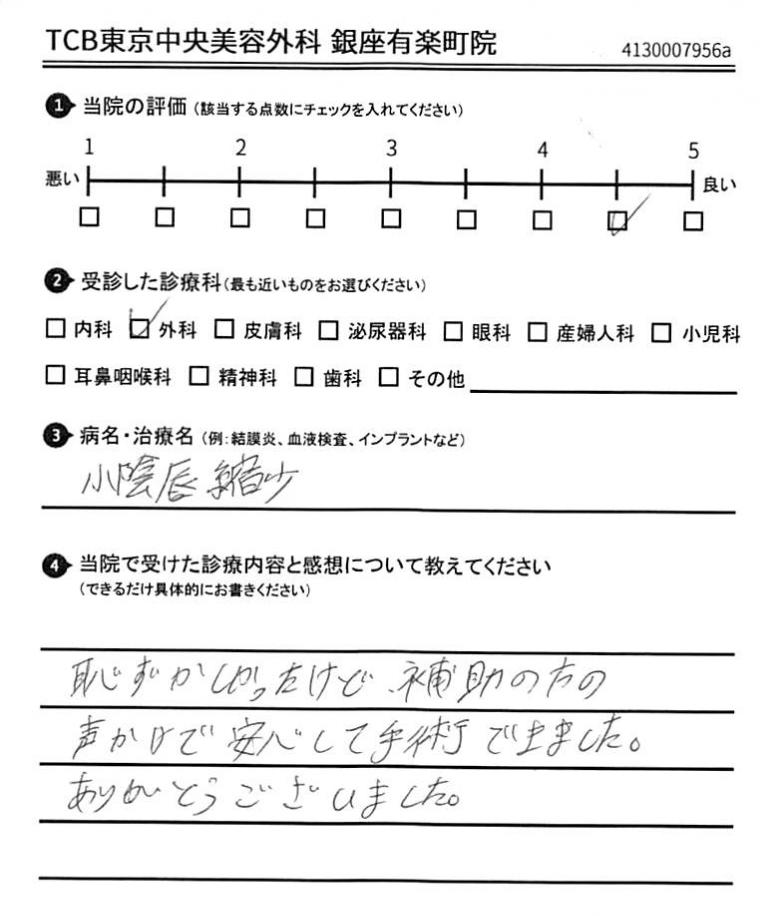 TCB東京中央美容外科 銀座有楽町院
4130007956a
1 当院の評価(該当する点数にチェックを入れてください)
1 2 3 4 5
悪い 良い
2 受診した診療科(最も近いものをお選びください)
内科 外科 皮膚科 泌尿器科 眼科 産婦人科 小児科
耳鼻咽喉科 精神科 歯科 その他
3 病名・治療名(例:結膜炎、血液検査、インプラントなど)
小陰唇縮少
4 当院で受けた診療内容と感想について教えてください
(できるだけ具体的にお書きください)
恥ずかしかったけど、補助の方の
声かけで安心して手術できました。
ありがとうございました。